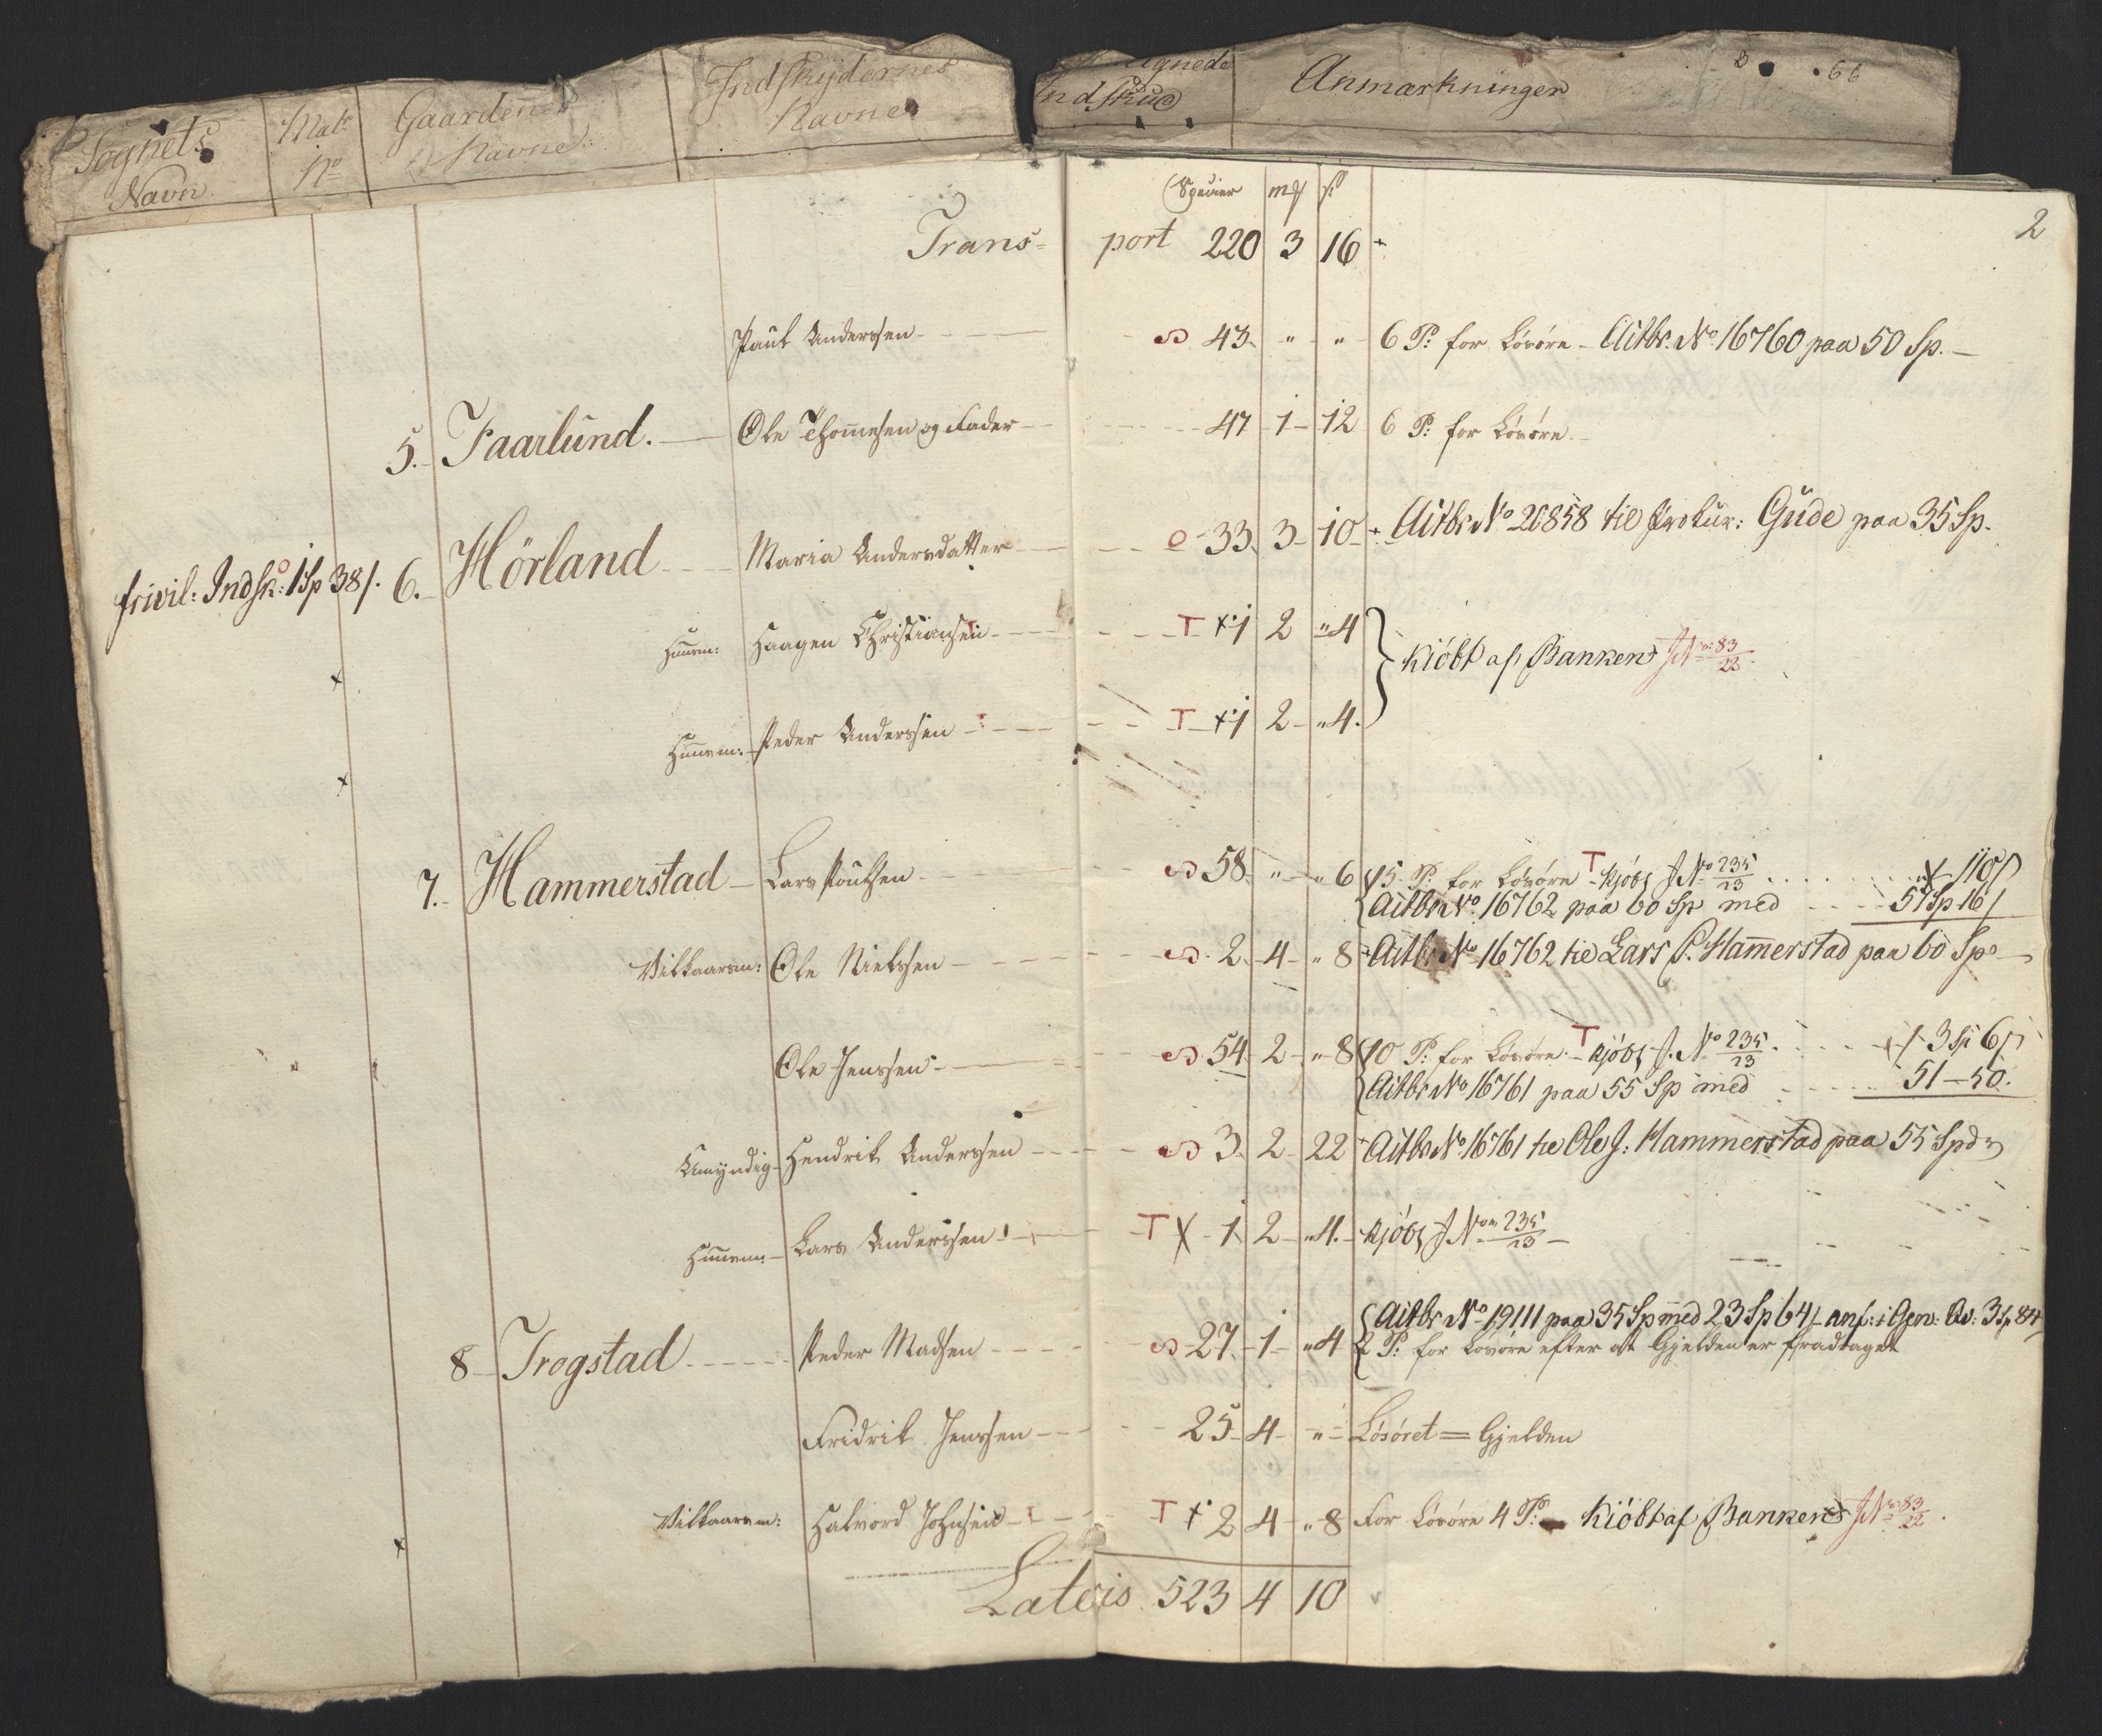 Sognets Navn. Matr No Gaardenes Navne. Indskydernes Navne
Indskud Anmærkninger 66
2
Species mk s
Trans= port 220 3 16
Paul Anderssen 43 " " 6 P: for Løsøre - Actbr. No 16760 paa 50 Sp.
5. Faarlund. Ole Thomesen og Fader 47 1 12 6 P: for Løsøre
frivil: Indsk: 1 Sp 38 s. 6. Hörland Maria Andersdatter 33 3 10 Actbr No 20858 til Prokur: Gude paa 35 Sp.
Huusm: Haagen Christiansen T x 1 2 " 4
Kiöbt af Banken J No 83/22
Huusm: Peder Anderssen T x 1 2 " 4.
7. Hammerstad Lars Poulsen 58 " " 6 15 P: for Løsøre T kjöbt J No 235/13 110 s
Actbr No 16762 paa 60 Sp med 57 Sp 16 s
Vilkaarsm: Ole Nielssen 2 4 " 8 Actbr No 16762 til Lars P. Hammerstad paa 60 Sp
Ole Jenssen 54 2 " 8 10 P: for Løsøre. T kjöbt J. No 235/13 3 Sp 6 s
Actbr No 16761 paa 55 Sp med 51 - 50.
Umyndig Hendrik Anderssen 3 2 22 Actbr No 16761 til Ole J: Hammerstad paa 55 Spd
Huusm: Lars Anderssen T x 1 2 " 4. kjöbt J No 235/13
Actbr No 19111 paa 35 Sp med 23 Sp 64 s anf: i Gen: 3 Sp 84 s
8 Trogstad Peder Madsen 27 1 " 4 2 P: for Løsøre efter at Gjelden er fradraget
Fridrik Jenssen 25 4 " Løsøret = Gjelden
Vilkaarsm: Halvord Johnsen T x 2 4 " 8 For Løsøre 4 P: Kiöbt af Banken J No 83/22
Lateris 523 4 10